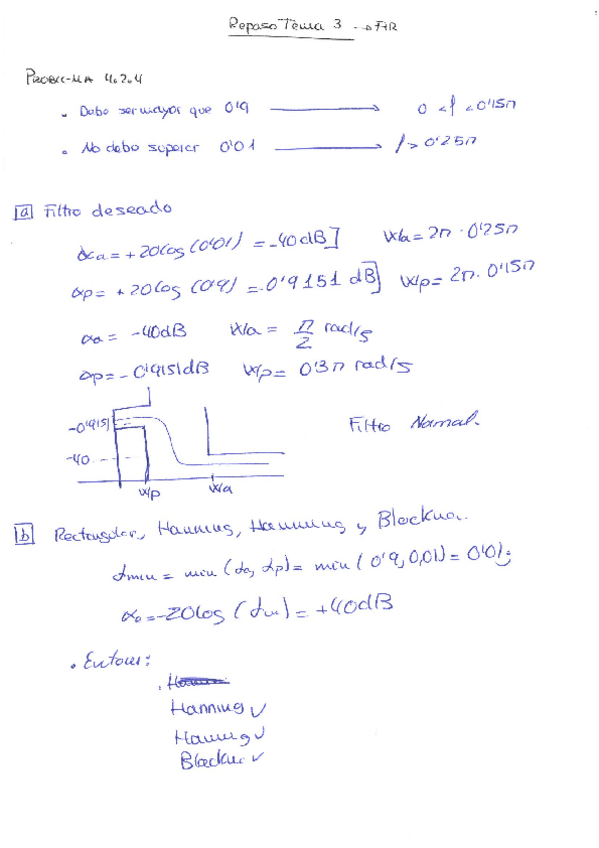 Repaso Tema 3 → FIR
PROBLEMA 4.2.4
• Debe ser mayor que 0'9 → 0 < f < 0'15π
• No debe superar 0'01 → f > 0'25π
a Filtro deseado
αa = + 20log (0'01) = -40dB] Wa = 2π · 0'25π
αp = + 20log (0'9) = -0'9151 dB] Wp = 2π · 0'15π
αa = -40dB Wa = π/2 rad/s
αp = -0'9151dB Wp = 0'3π rad/s
-0'9151
-40
Wp Wa
Filtro Normal.
b Rectangular, Hanning, Hamming y Blackman.
δmin = min (δa, δp) = min (0'9, 0,01) = 0'01;
α0 = -20log (δm) = +40dB
• Entonces:
Hanning ✓
Hamming ✓
Blackman ✓